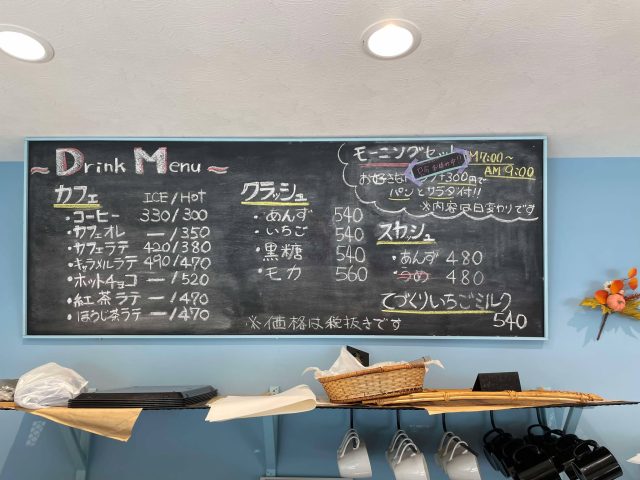 ~ Drink Menu ~
カフェ ICE/HOT
・コーヒー 330/300
・カフェオレ ー/350
・カフェラテ 420/380
・キャラメルラテ 490/470
・ホットチョコ ー/520
・紅茶ラテ ー/470
・ほうじ茶ラテ ー/470
クラッシュ
・あんず 540
・いちご 540
・黒糖 540
・モカ 560
※価格は税抜きです
モーニングセット AM7:00~
AM9:00
お好きな +300円で
パンとサラダ付!!
※内容は日変わりです
スカッシュ
・あんず 480
・うめ 480
てづくりいちごミルク
540